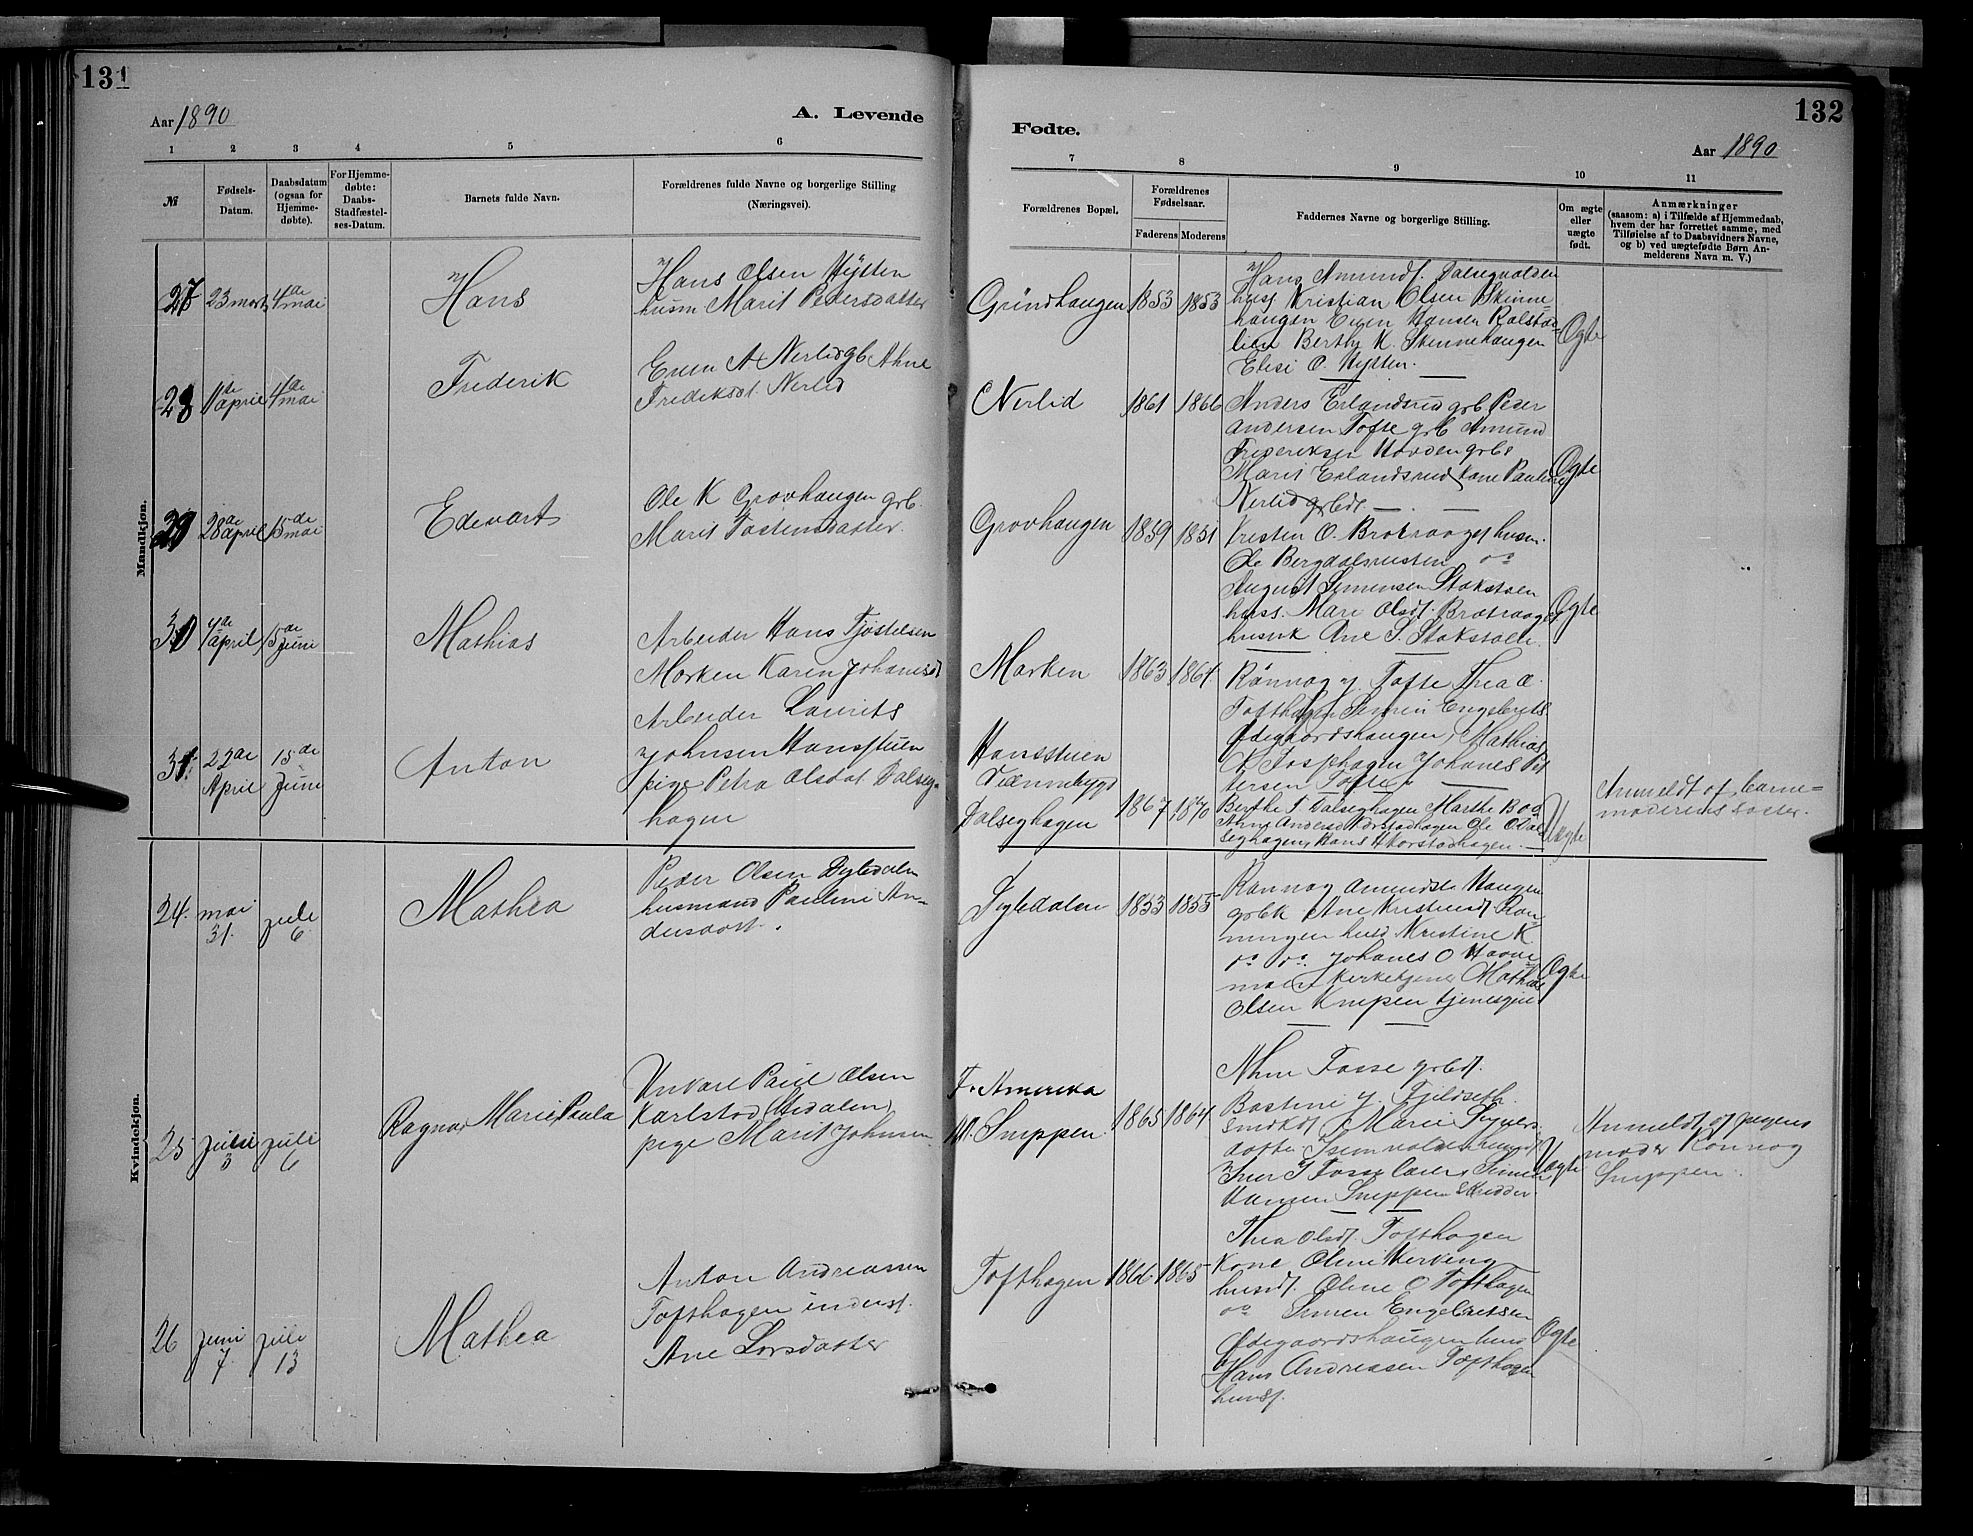 131
Aar 1890
A. Levende
1 2 3 4 5 6
№
Fødsels-
Datum.
Daabsdatum
(ogsaa for
Hjemme-
døbte).
For Hjemme-
døbte:
Daabs-
Stadfæstel-
ses-Datum.
Barnets fulde Navn.
Forældrenes fulde Navne og borgerlige Stilling
(Næringsvei).
Mandkjøn.
27 23 marts 4de mai
Hans
Hans Olsen Hysten
husm Marit Pedersdatter
28 11te april 4de mai
Frederik
Even A Nerlid gb Ahne
Frediksdt Nerlid
29 28de april 15de mai
Edevart
Ole K Grovhaugen grb.
Marit Tostensdatter
30 7de april 15de Juni
Mathias
Arbeider Hans Tjøstelsen
Morken Karen Johanesdt
31. 22de April 15de Juni
Anton
Arbeider Laurits
Johnsen Hansstuen
pige Petra Olsdat Dalseg-
hagen
Kvindekjøn.
24. mai 31. juli 6.
Mathea
Peder Olsen
husmand Pauline An-
dersdatt.
25 Juli 3 Juli 6
Ragna Marie Paula
Unkarl Paul Olsen
Karlstad
pige Marit Johnsen
26 Juni 7. juli 13
Mathea
Anton Andreassen
Tofthagen inderst.
Ane Larsdatter
132
Fødte.
Aar 1890
7 8 9 10 11
Forældrenes Bopæl.
Forældrenes
Fødselsaar.
Faderens Moderens
Faddernes Navne og borgerlige Stilling.
Om ægte
eller
uægte
født.
Anmærkninger
(saasom: a) i Tilfælde af Hjemmedaab,
hvem der har forrettet samme, med
Tilføielse af to Daabsvidners Navne,
og b) ved uægtefødte Børn An-
melderens Navn m. V.)
Grindhaugen 1853 1853
Hans Amunds. Dalsegvolden
hus Kristian Olsen Skinne-
haugen Even Hansen
lien Berthe K. Skinnehaugen
Elise O. Hysten.
Ægte
Nerlid 1861 1866
Anders Erlandsrud grb Peder
Andersen Tofte grb Amund
Frederiksen Hovden grbs
Marit Erlandsrud kone Pauline
Nerlid grbdt
Ægte
Grovhaugen 1859 1851
Kresten O. husm.
Ole Bergdalsrusten do
August Simensen Stokstoen
huss. Mari Olsdt.
husmk Ane S. Stokstoen
Ægte
Morken 1863 1864
Rønnog J. Tofte Thea O.
Tofthagen Simen Engebrets
Ødegaardshaugen, Mathias
K Tofthagen Johanes Pet
tersen Tofte
Hansstuen
Dalseghagen 1867 1870
Berthe T. Dalseghagen Marthe B do
Uægte
Anmeldt af barne-
moderens søster.
1853 1855
Rønnog Amundsdt Haugen
grbk Ane Kristiansdt
husd Kristine K
do do. Johanes O
Kirketjener Mathias
Olsen tjenesgut
Ægte
F. Amerika
M. Snippen. 1865 1864
Ahne Fosse grbdt.
Bastine J. Fjeldseth.
Marie
Iver I Fosse Simen
Hansen Snippen Skredder.
Uægte
Anmeldt af pigens
moder Rønnog
Snippen.
Tofthagen 1866 1865
Thea Olsdt. Tofthagen
Kone Oline
husdt. Oline O Tofthagen
do Simen Engebretsen
Ødegaardshaugen husm
Hans Andreassen Tofthagen
husmf.
Ægte